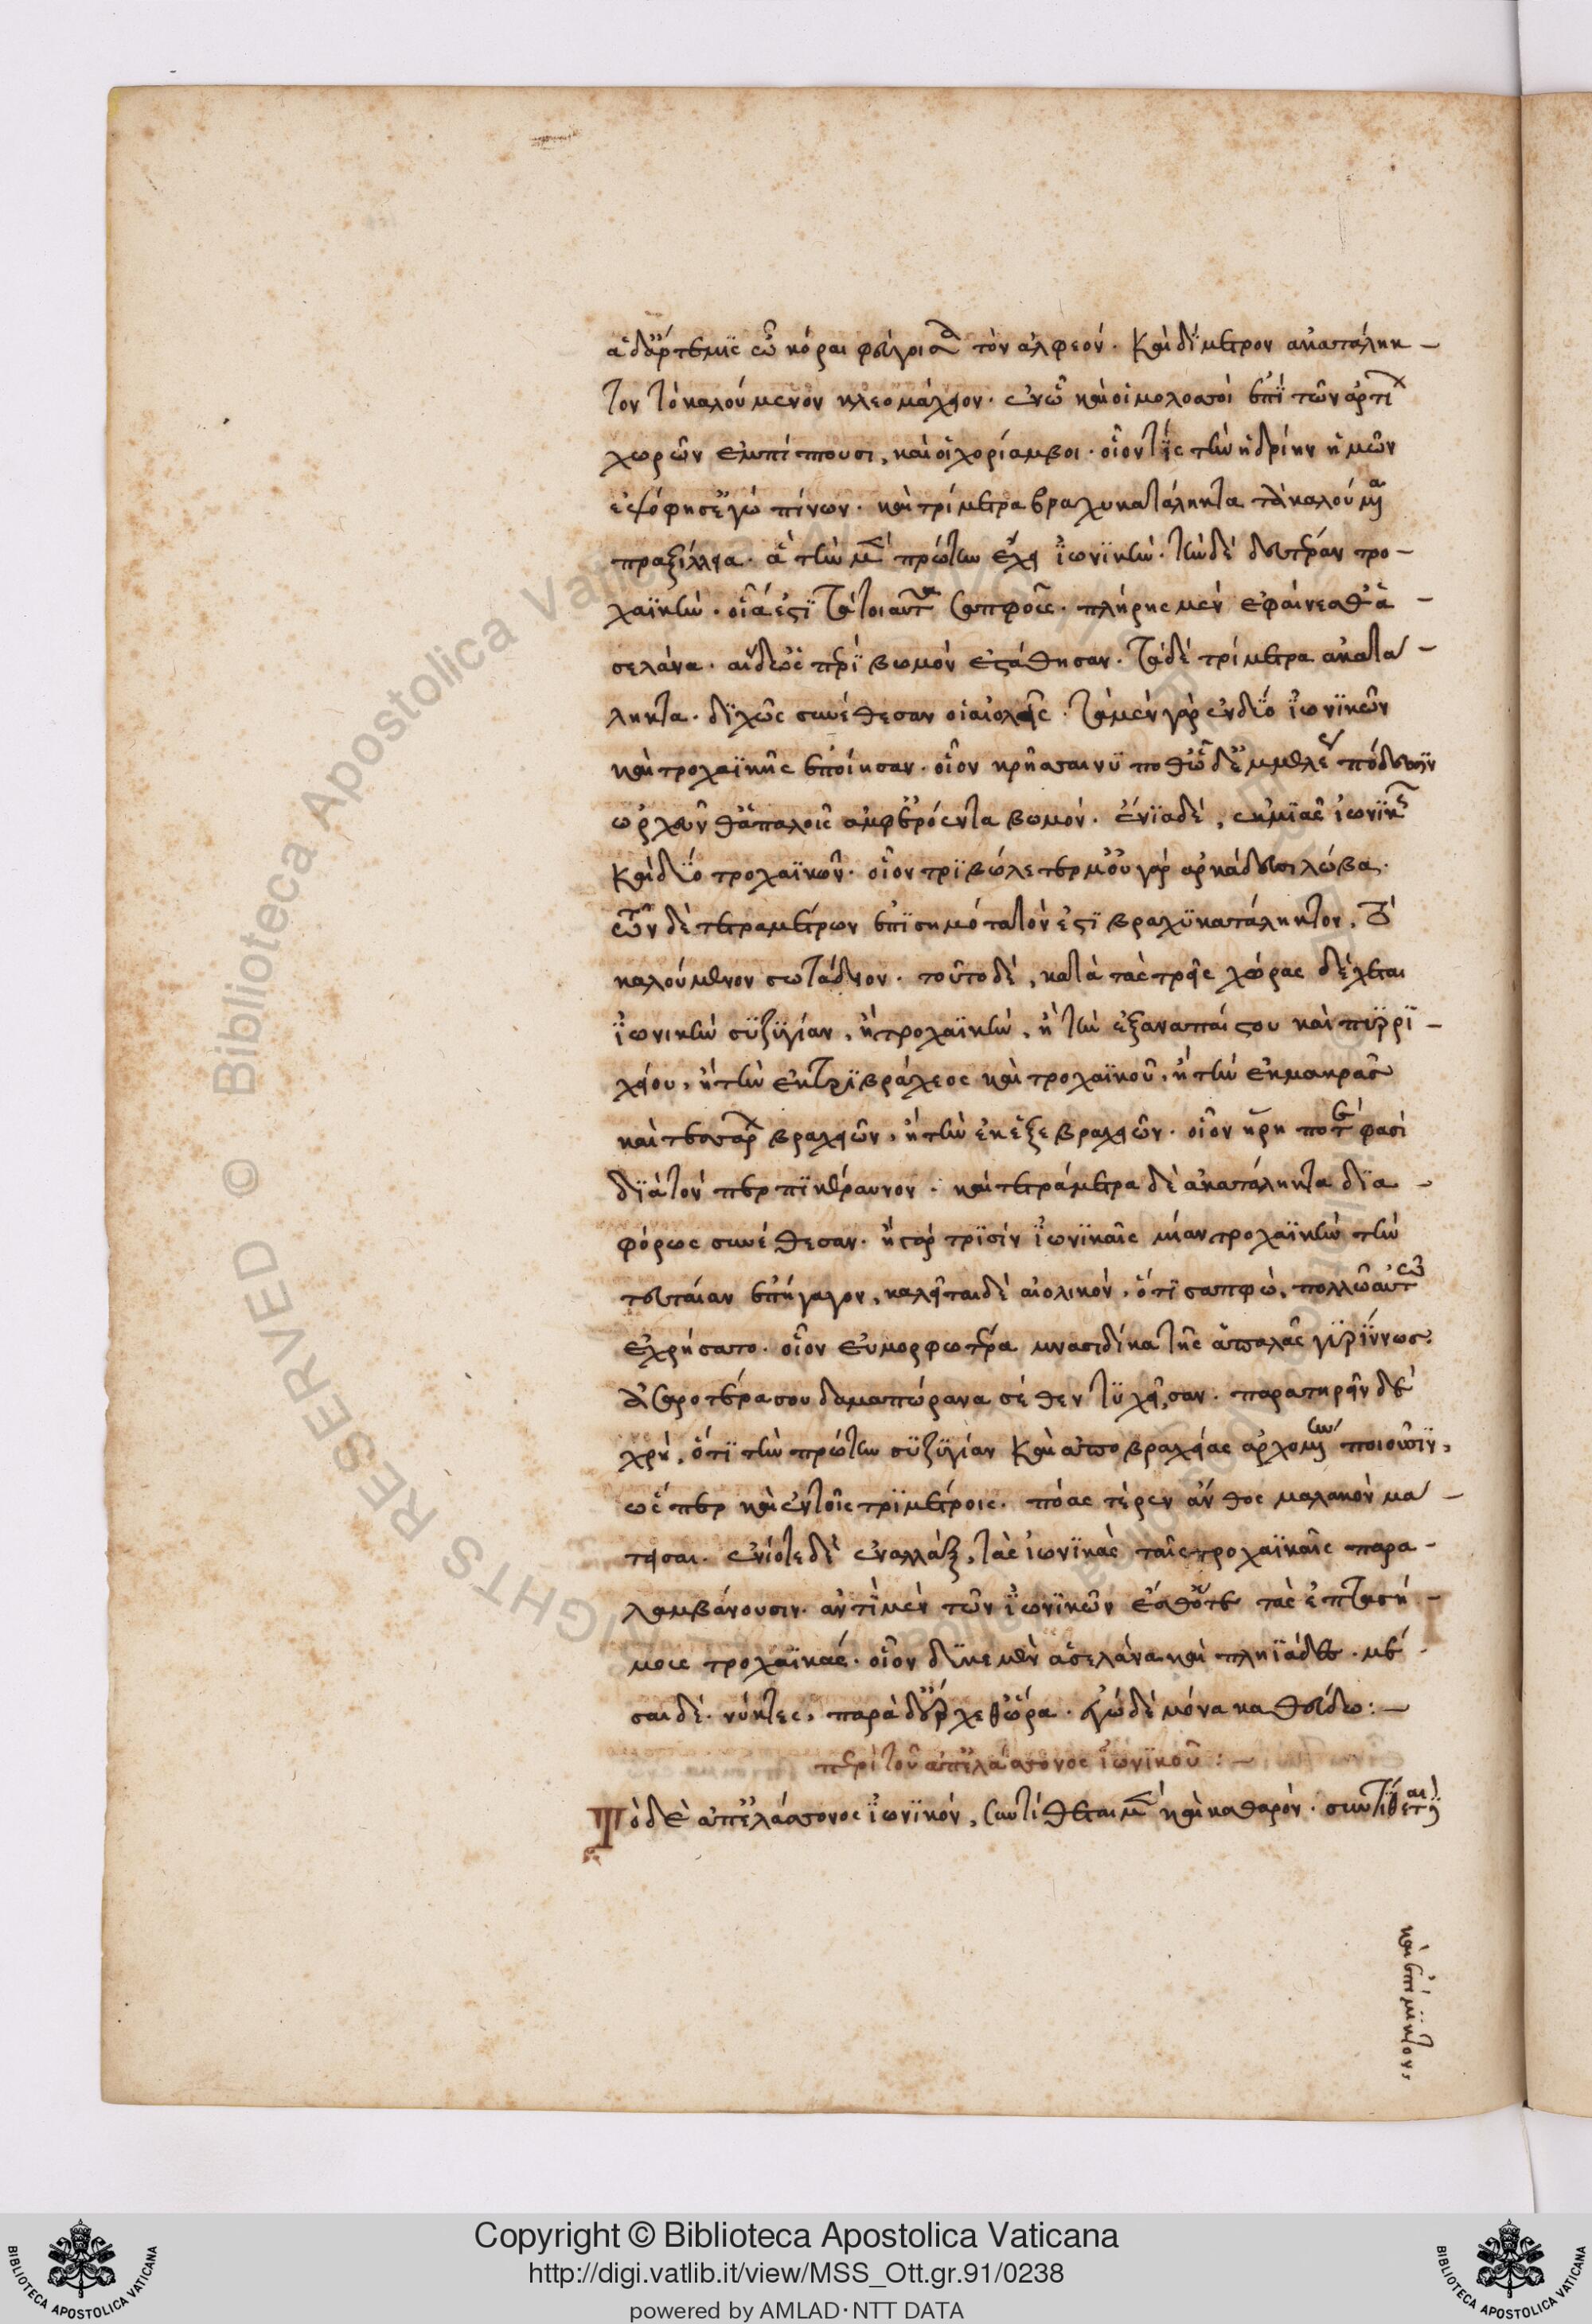 ἁδ' ἄρτεμις ὦ κόραι φεύγοισα τὸν ἀλφεόν. καὶ δίμετρον ἀκατάληκ-
τον τὸ καλούμενον κλεομάχειον. ἐν ᾧ καὶ οἱ μολοσσοὶ ἐπὶ τῶν ἀρτί
χωρῶν ἐμπίπτουσι, καὶ οἱ χορίαμβοι. οἷον τίς τὴν ὑδρίην ἡμῶν
ἐψόφησ' ἐγὼ πίνων. καὶ τρίμετρα βραχυκατάληκτα τὰ καλούμενα
πραξίλλεια. ἃ τὴν μὲν πρώτην ἔχει ἰωνικὴν. τὴν δὲ δευτέραν τρο-
χαϊκὴν. οἷά ἐστι τὰ τοιαῦτα σαπφοῦς. πλήρης μὲν ἐφαίνεσθ' ἁ
σελάνα. αἱ δ' ὡς περὶ βωμὸν ἐστάθησαν. τὰ δὲ τρίμετρα ἀκατά
ληκτα. διχῶς συνέθεσαν οἱ αἰολεῖς. τὰ μὲν γὰρ ἐν δύο ἰωνικῶν
καὶ τροχαϊκῆς ἐποίησαν. οἷον κρῆσσαι νύ ποθ' ὧδ' ἐμμελέως πόδεσσιν
ὠρχεῦνθ' ἁπαλοῖς ἀμφ' ἐρόεντα βωμόν. ἔνια δὲ, ἐκ μιᾶς ἰωνικῆς
καὶ δύο τροχαϊκῶν. οἷον τριβώλετερ· οὐ γὰρ ἀρκάδεσσι λώβα.
τῶν δὲ τετραμέτρων ἐπισημότατόν ἐστι βραχυκατάληκτον, τὸ
καλούμενον σωτάδειον. τοῦτο δὲ, κατὰ τὰς τρεῖς χώρας δέχεται
ἰωνικὴν συζυγίαν, ἢ τροχαϊκὴν, ἢ τὴν ἐξ ἀναπαίστου καὶ πυρρι-
χίου, ἢ τὴν ἐκ τριβράχεος καὶ τροχαϊκοῦ, ἢ τὴν ἐκ μακρᾶς
καὶ τεσσάρων βραχειῶν, ἢ τὴν ἐκ ἓξ βραχειῶν. οἷον ἥρην ποτέ φασι
δία τὸν τερπικέραυνον. καὶ τετράμετρα δὲ ἀκατάληκτα δια-
φόρως συνέθεσαν. ἢ γὰρ τρισὶν ἰωνικαῖς μίαν τροχαϊκὴν τὴν
τελευταίαν ἐπήγαγον, καλεῖται δὲ αἰολικόν, ὅτι σαπφὼ, πολλῷ αὐτῷ
ἐχρήσατο. οἷον εὐμορφοτέρα μνασιδίκα τῆς ἁπαλᾶς γυρίννως.
ἀσαροτέρας οὐδαμά πω ῥανα σέθεν τυχεῖσαν. παρατηρεῖν δὲ
χρή, ὅτι τὴν πρώτην συζυγίαν καὶ ἀπὸ βραχείας ἀρχομένην ποιοῦσιν,
ὥσπερ καὶ ἐν τοῖς τριμέτροις. πόας τέρεν ἄνθος μαλακὸν μα-
τεῖσαι. ἐνίοτε δὲ ἐναλλὰξ, τὰς ἰωνικὰς ταῖς τροχαϊκαῖς παρα-
λαμβάνουσιν. ἀντὶ μὲν τῶν ἰωνικῶν ἔσθ' ὅτε τὰς ἑπτασή-
μους τροχαϊκάς. οἷον δέδυκε μὲν ἁ σελάνα καὶ πληϊάδες. μέ-
σαι δὲ. νύκτες, παρὰ δ' ἔρχεθ' ὥρα. ἐγὼ δὲ μόνα καθεύδω:—
περὶ τοῦ ἀπ' ἐλάσσονος ἰωνικοῦ:—
Τὸ δὲ ἀπ' ἐλάσσονος ἰωνικόν, συντίθεται μὲν καὶ καθαρόν. συντίθεται
καὶ ἐπίμικτον,